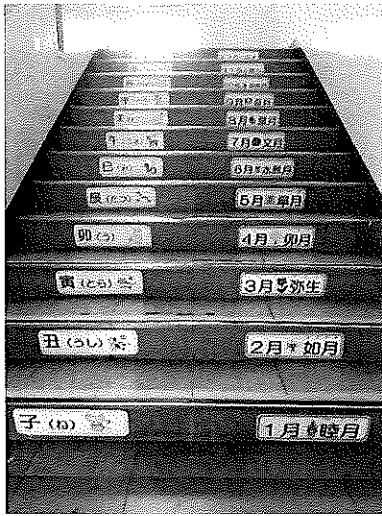 8月 葉月
午 7月 文月
巳 6月 水無月
辰 (たつ) 5月 皐月
卯 (う) 4月 卯月
寅 (とら) 3月 弥生
丑 (うし) 2月 如月
子 (ね) 1月 睦月